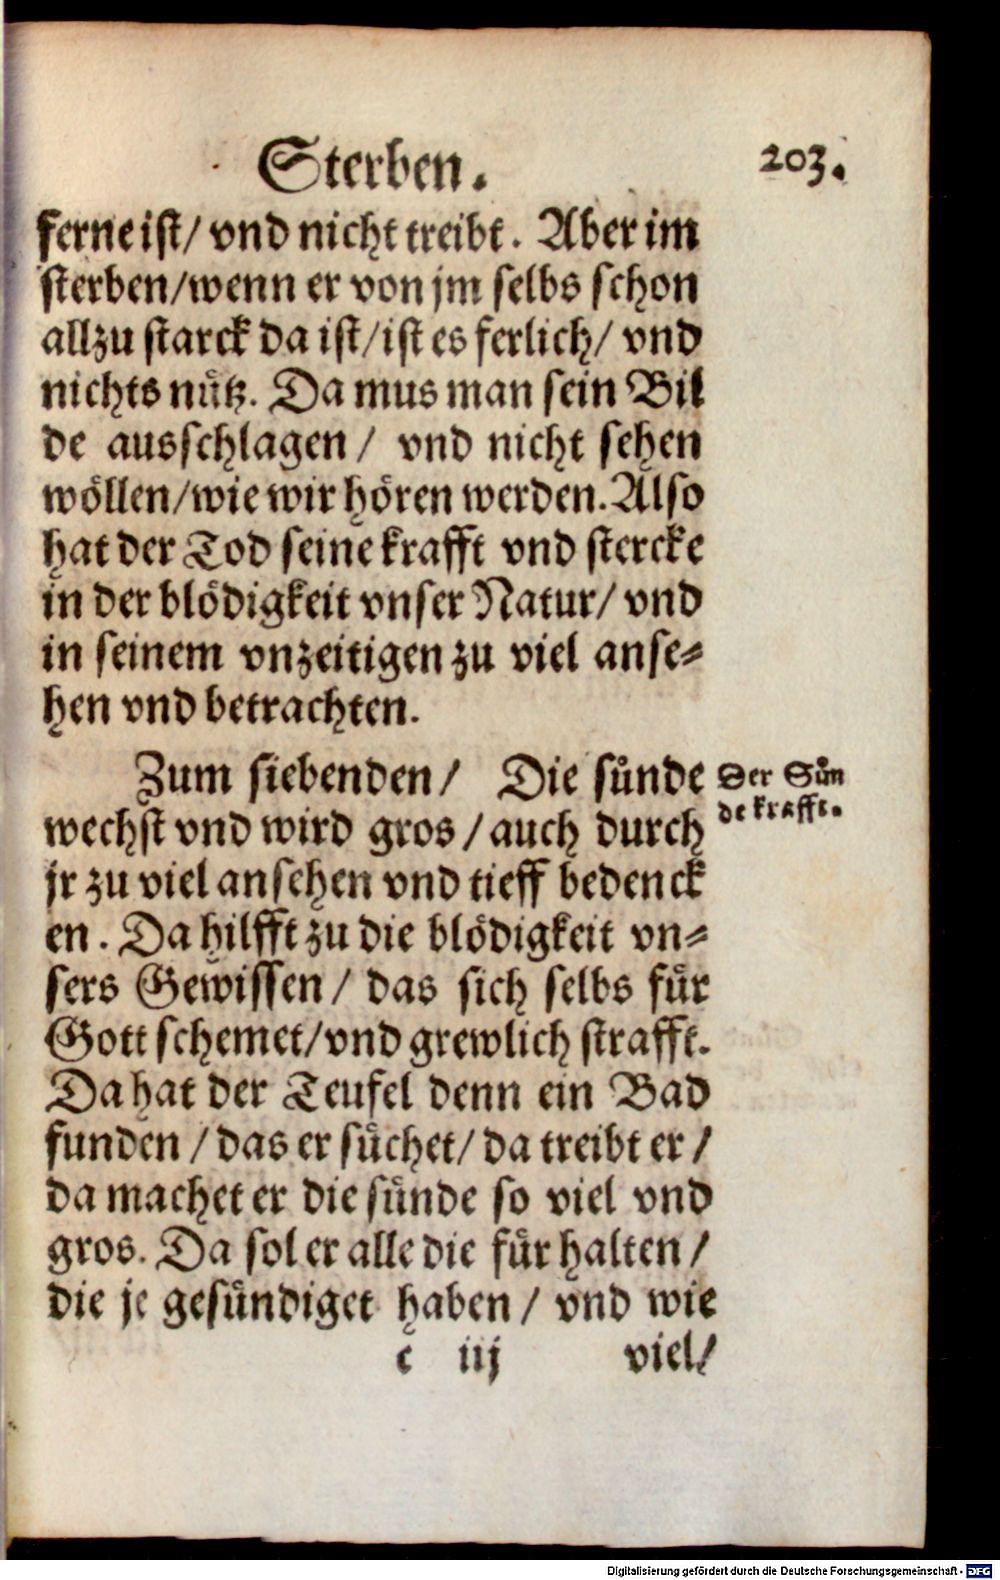 Sterben. 203.
ferne ist/ vnd nicht treibt. Aber im
sterben/wenn er von jm selbs schon
allzu starck da ist/ist es ferlich/ vnd
nichts nuͤtz. Da mus man sein Bil
de ausschlagen/ vnd nicht sehen
woͤllen/wie wir hoͤren werden. Also
hat der Tod seine krafft vnd stercke
in der bloͤdigkeit vnser Natur/ vnd
in seinem vnzeitigen zu viel anse⸗
hen vnd betrachten.
Zum siebenden/ Die suͤnde
Der Suͤn
de krafft.
wechst vnd wird gros/auch durch
jr zu viel ansehen vnd tieff bedenck
en. Da hilfft zu die bloͤdigkeit vn⸗
sers Gewissen/ das sich selbs fuͤr
Gott schemet/vnd grewlich strafft.
Da hat der Teufel denn ein Bad
funden/das er suͤchet/ da treibt er/
da machet er die suͤnde so viel vnd
gros. Da sol er alle die fuͤr halten/
die je gesuͤndiget haben/ vnd wie
c iij viel/
Digitalisierung gefördert durch die Deutsche Forschungsgemeinschaft - DFG